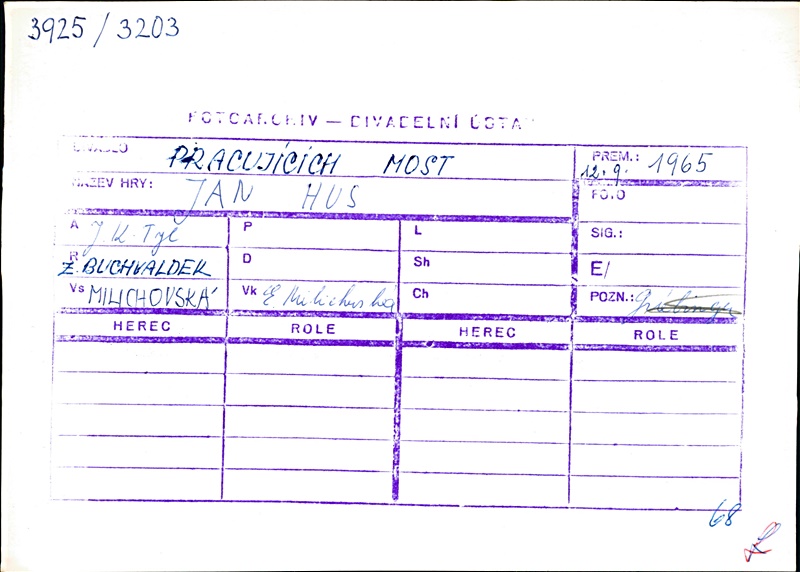 3925 / 3203
FOTOARCHIV — DIVADELNÍ ÚSTAV
DIVADLO PRACUJÍCÍCH MOST
PREM.: 12. 9. 1965
NÁZEV HRY: JAN HUS
FOTO
A J. K. Tyl P L SIG.:
R Z. BUCHVALDEK D Sh E/
Vs MILICHOVSKÁ Vk E. Milichovská Ch POZN.:
HEREC ROLE HEREC ROLE
68